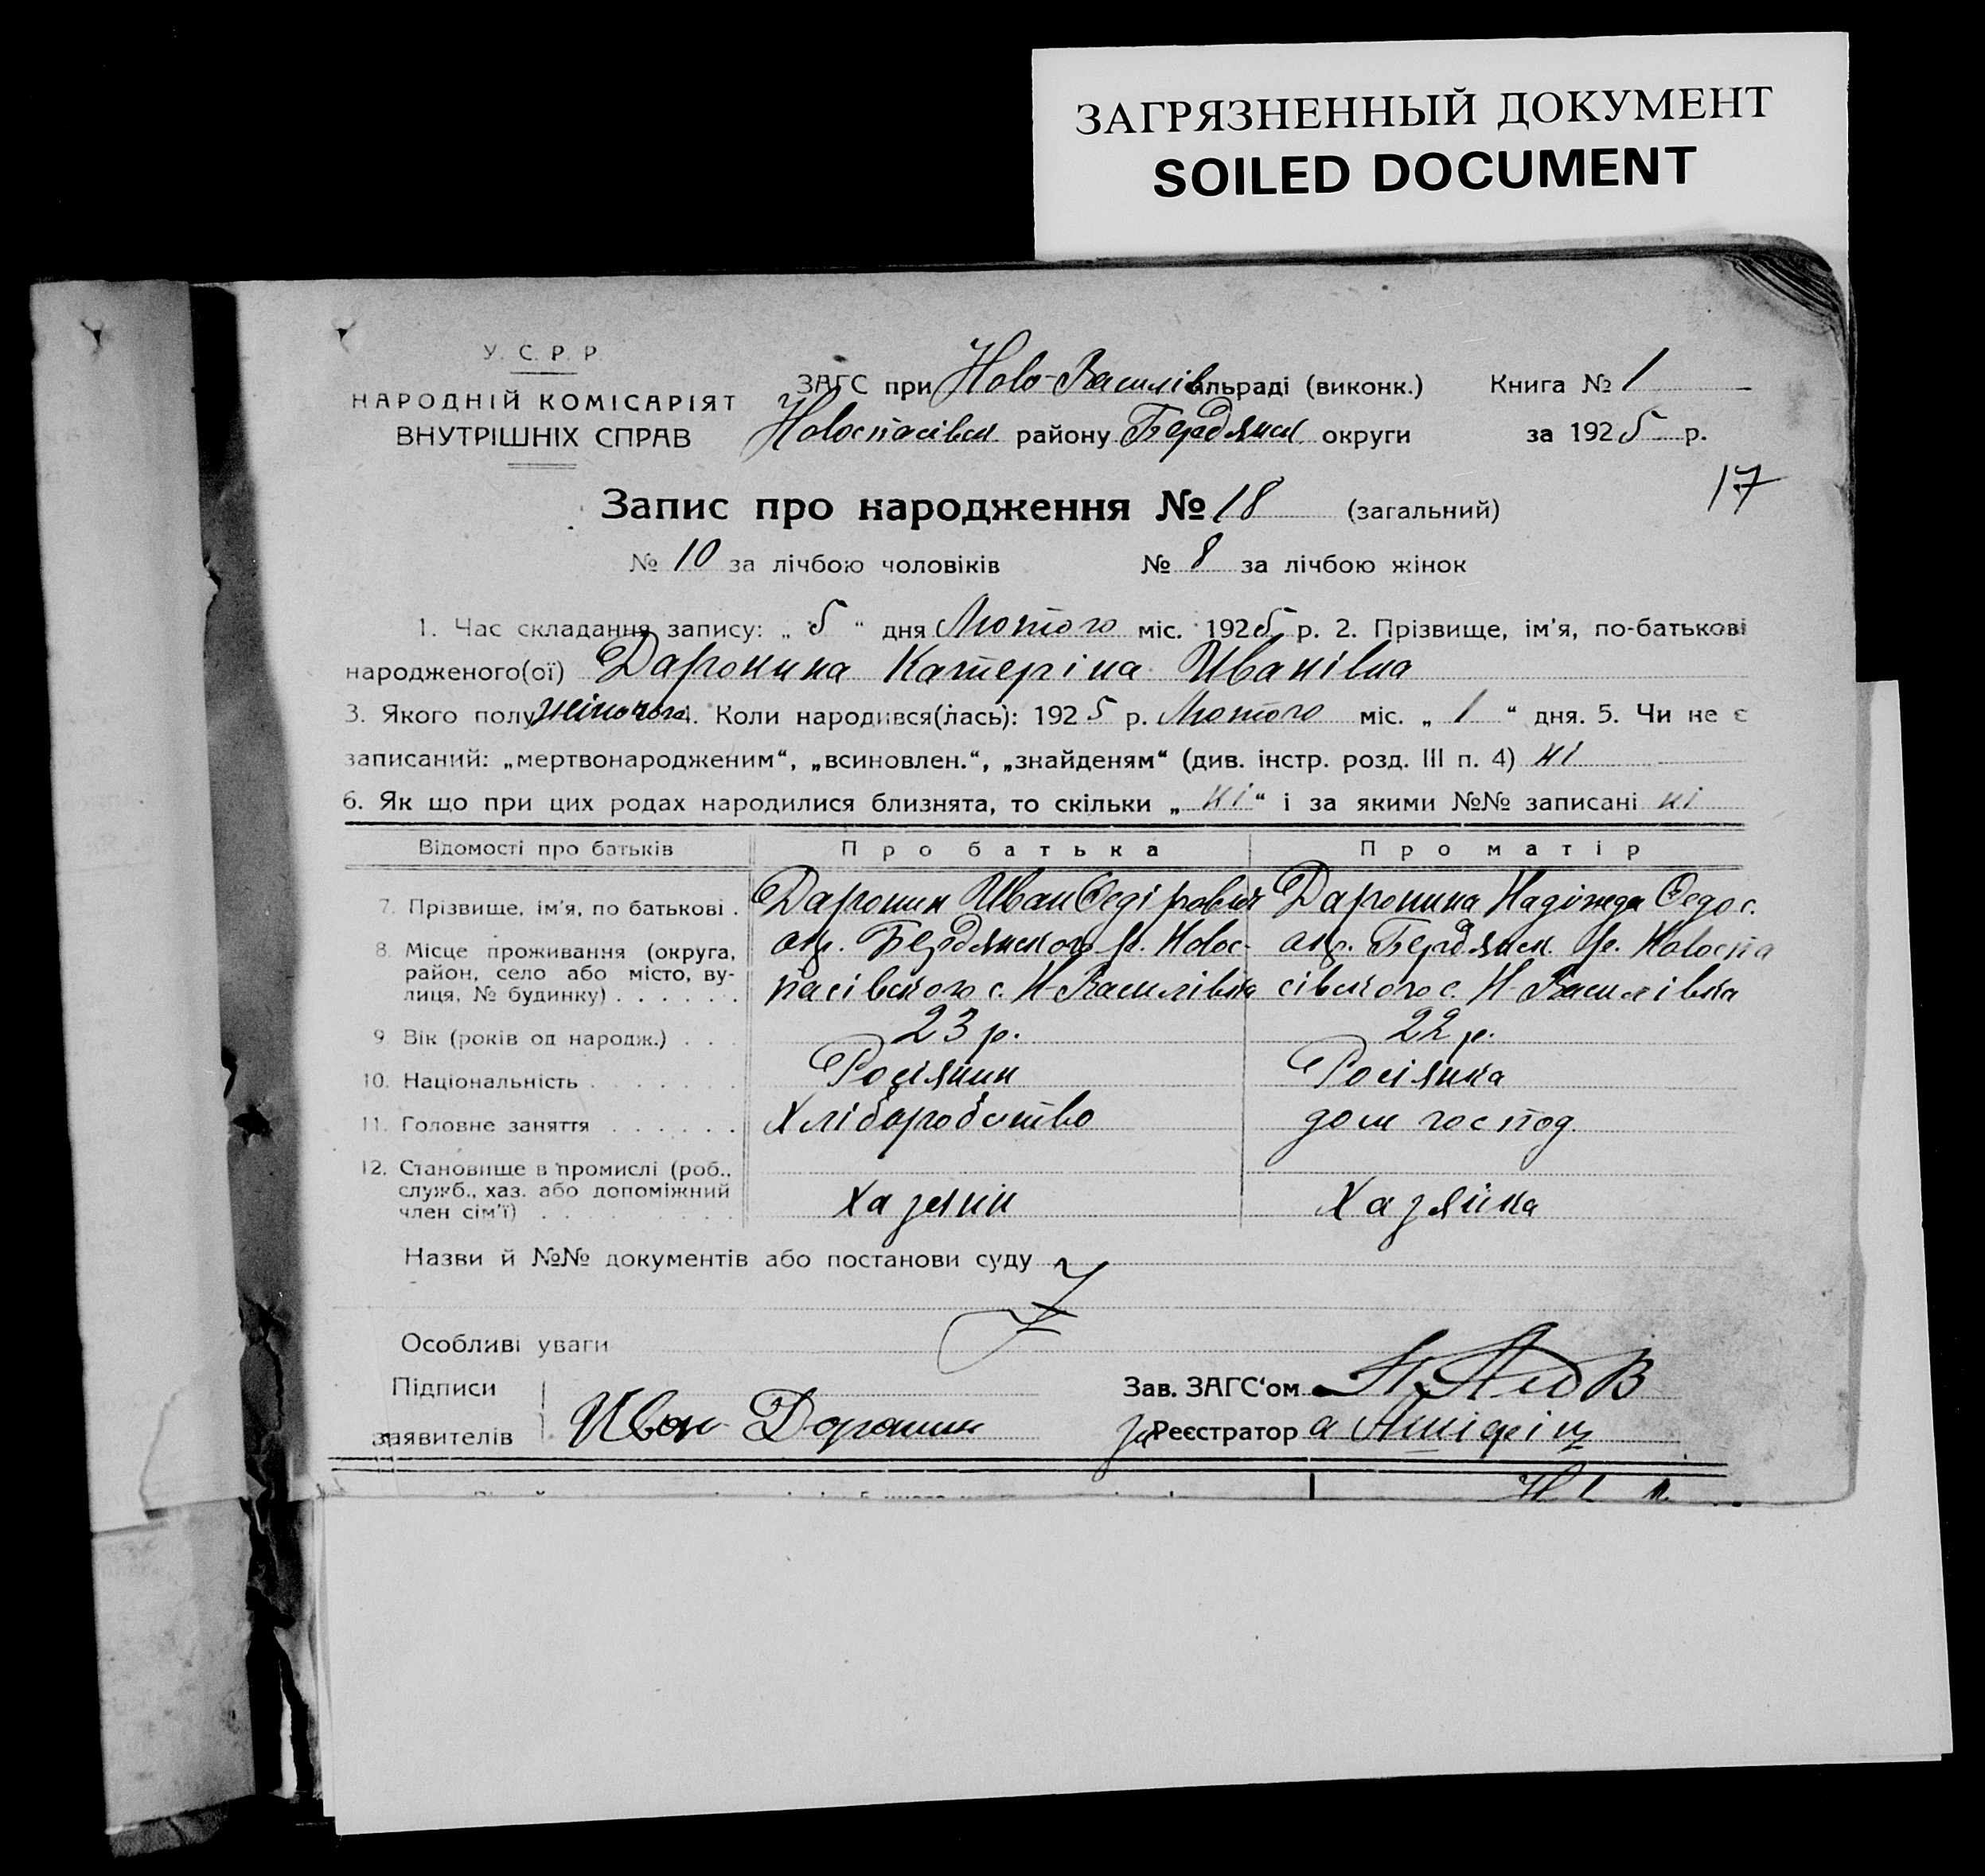 ЗАГРЯЗНЕННЫЙ ДОКУМЕНТ
SOILED DOCUMENT
У. С. Р. Р.
НАРОДНІЙ КОМІСАРІЯТ
ВНУТРІШНІХ СПРАВ
ЗАГС при Ново-Василів сільраді (виконк.) Книга № 1
Новоспасівск району Бердянск округи за 1925 р.
17
Запис про народження № 18 (загальний)
№ 10 за лічбою чоловіків № 8 за лічбою жінок
1. Час складання запису: „ 5 “ дня Лютого міс. 1925 р. 2. Прізвище, ім'я, по-батькові
народженого(ої) Даронина Катеріна Иванівна
3. Якого полу жіночого 4. Коли народився(лась): 1925 р. Лютого міс. „ 1 “ дня. 5. Чи не є
записаний: „мертвонародженим“, „всиновлен.“, „знайденям“ (див. інстр. розд. III п. 4) ні
6. Як що при цих родах народилися близнята, то скільки „ ні “ і за якими №№ записані ні
Відомості про батьків Про батька Про матір
7. Прізвище, ім'я, по батькові . Даронин Иван Федірович Даронина Надіжда Федос.
8. Місце проживання (округа, район, село або місто, вулиця, № будинку) . . . . . . окр. Бердянского р. Новос- окр. Бердянск р. Новоспа
пасівского с. Н-Василівка сівского с. Н-Василівка
9. Вік (років од народж.) . . . 23 р. 22 р.
10. Національність . . . . . . . Росіянин Росіянка
11. Головне заняття . . . . . . Хліборобство дом господ.
12. Становище в промислі (роб., служб., хаз. або допоміжний член сім'ї) . . . . . . . . . Хазяин Хазяйка
Назви й №№ документів або постанови суду
Особливі уваги
Підписи Зав. ЗАГС'ом
заявителів Иван Доронин за Реєстратор